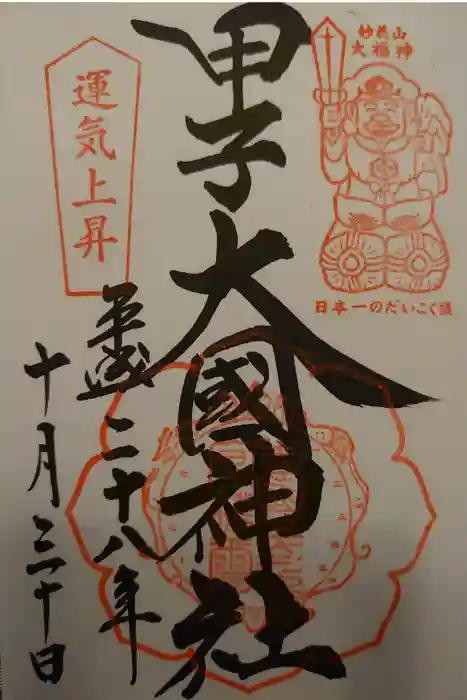 妙義山
大福神
日本一のだいこく様
甲子大國神社
運気上昇
平成二十八年
十月三十日